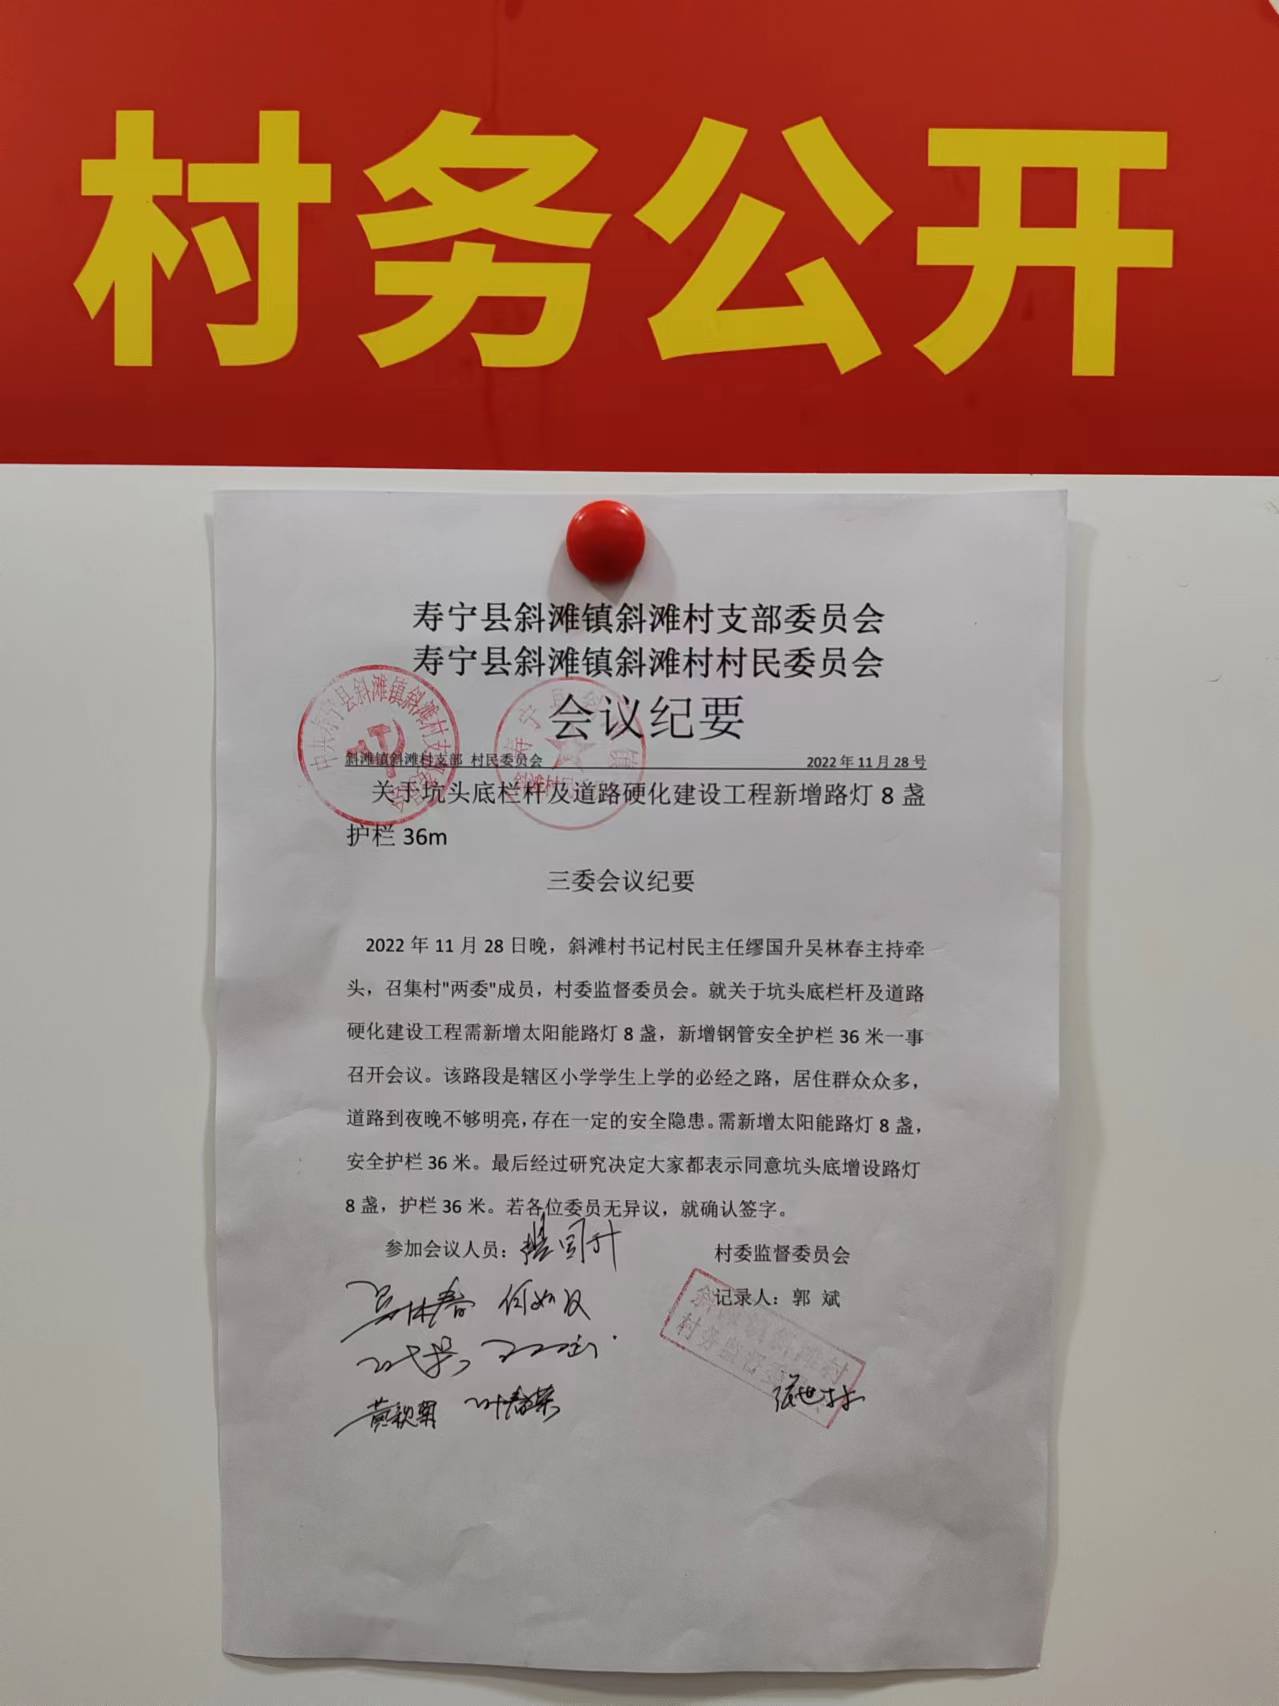 村务公开
寿宁县斜滩镇斜滩村支部委员会
寿宁县斜滩镇斜滩村村民委员会
会议纪要
斜滩镇斜滩村支部 村民委员会 2022年11月28号
关于坑头底栏杆及道路硬化建设工程新增路灯8盏
护栏36m
三委会议纪要
2022年11月28日晚，斜滩村书记村民主任缪国升吴林春主持牵
头，召集村"两委"成员，村委监督委员会。就关于坑头底栏杆及道路
硬化建设工程需新增太阳能路灯8盏，新增钢管安全护栏36米一事
召开会议。该路段是辖区小学学生上学的必经之路，居住群众众多，
道路到夜晚不够明亮，存在一定的安全隐患。需新增太阳能路灯8盏，
安全护栏36米。最后经过研究决定大家都表示同意坑头底增设路灯
8盏，护栏36米。若各位委员无异议，就确认签字。
参加会议人员：缪国升 村委监督委员会
吴林春 记录人：郭 斌
叶春荣
中共寿宁县斜滩镇斜滩村支部委员会
斜滩镇斜滩村
村务监督委员会